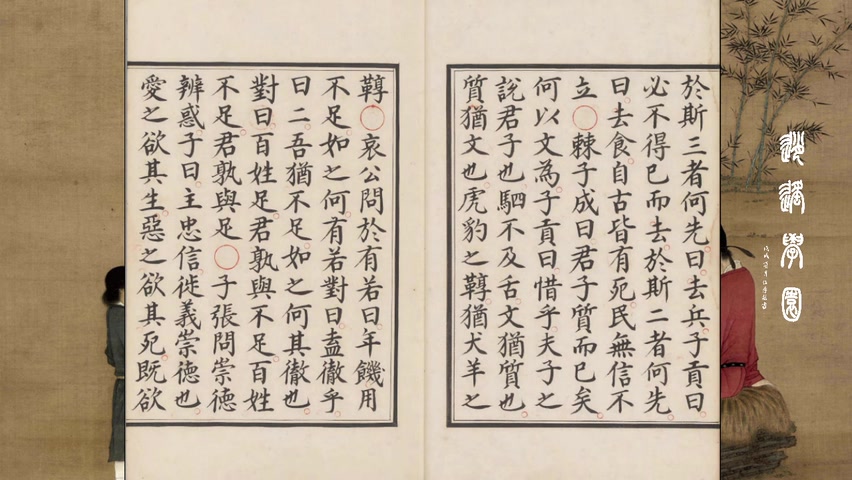 逍遙學園
於斯三者何先曰去兵子貢曰
必不得已而去於斯二者何先
曰去食自古皆有死民無信不
立○棘子成曰君子質而已矣
何以文為子貢曰惜乎夫子之
說君子也駟不及舌文猶質也
質猶文也虎豹之鞟猶犬羊之
鞟○哀公問於有若曰年饑用
不足如之何有若對曰盍徹乎
曰二吾猶不足如之何其徹也
對曰百姓足君孰與不足百姓
不足君孰與足○子張問崇德
辨惑子曰主忠信徙義崇德也
愛之欲其生惡之欲其死既欲